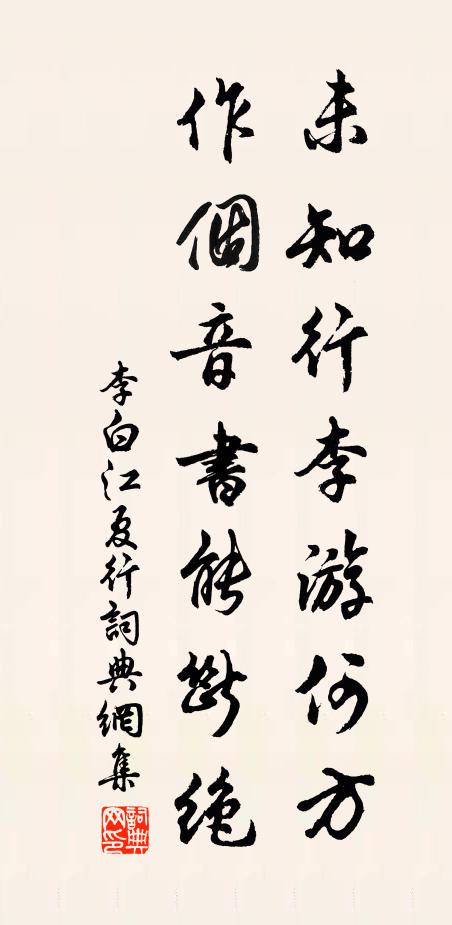 未知行李游何方
作個音書能斷絶
李白江夏行詞典網集
詞典網印